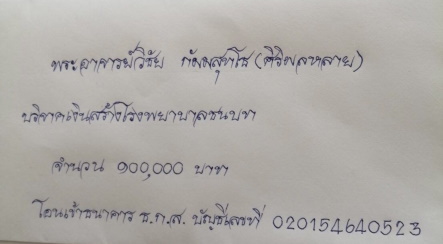 พระอาจารย์วิชัย กัมมสุทโธ (ศิริผลหลาย)
บริจาคเงินสร้างโรงพยาบาลชนบท
จำนวน ๑๐๐,๐๐๐ บาท
โอนเข้าธนาคาร ธ.ก.ส. บัญชีเลขที่ 020154640523